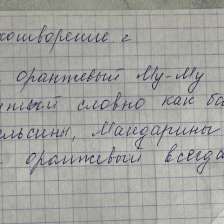 хотворение с
оранжевый Му-Му
словно как ба
ельсины, Мандарины
оранжевый всегда